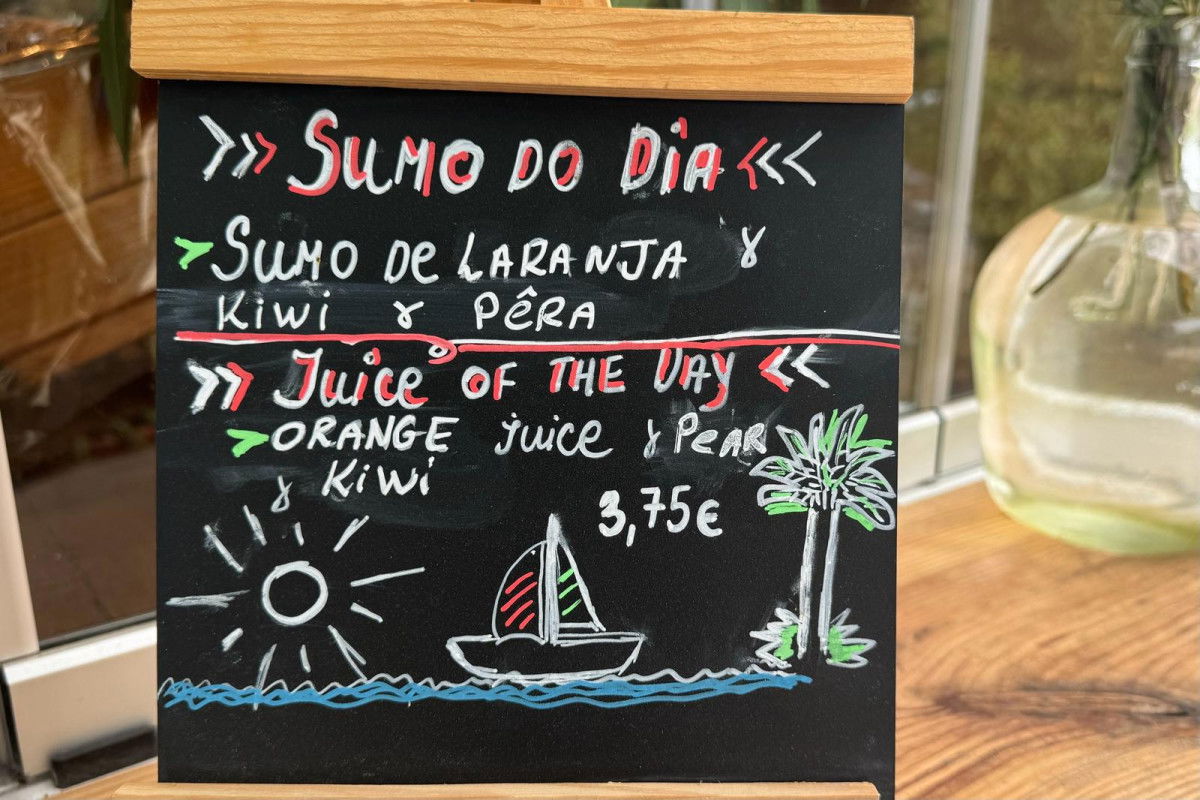 >> SUMO DO DIA <<
> SUMO De LARANJA &
KiWi & PÊRA
>> Juice OF THE DAY <<
> ORANGE juice & PeAR
& KiWi
3,75€